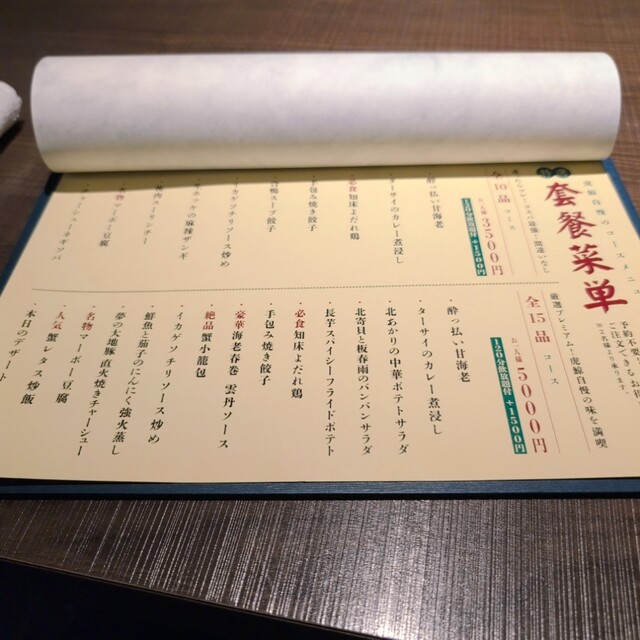 虎鯨自慢のコースメニュー
套餐菜単
予約不要
ご注文できるお得
※2名様より承ります。
全10品 コース
お一人様 3500円
120分飲放題付 +1500円
酔っ払い甘海老
ターサイのカレー煮浸し
必食 知床よだれ鶏
手包み焼き餃子
イカゲソチリソース炒め
ザンギ
マーボー豆腐
厳選プレミアム!虎鯨自慢の味を満喫
全15品 コース
お一人様 5000円
120分飲放題付 +1500円
・酔っ払い甘海老
・ターサイのカレー煮浸し
・北あかりの中華ポテトサラダ
・北寄貝と板春雨のバンバンサラダ
・長芋スパイシーフライドポテト
・必食 知床よだれ鶏
・手包み焼き餃子
・豪華 海老春巻 雲丹ソース
・絶品 蟹小龍包
・イカゲソチリソース炒め
・鮮魚と茄子のにんにく強火蒸し
・夢の大地豚 直火焼きチャーシュー
・名物 マーボー豆腐
・人気 蟹レタス炒飯
・本日のデザート